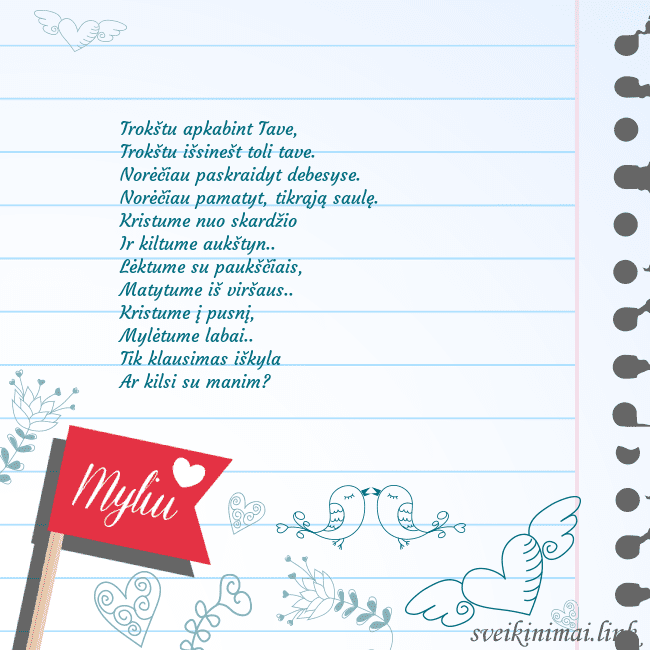 Trokštu apkabint Tave,
Trokštu išsinešt toli tave.
Norėčiau paskraidyt debesyse.
Norėčiau pamatyt, tikrąją saulę.
Kristume nuo skardžio
Ir kiltume aukštyn..
Lėktume su paukščiais,
Matytume iš viršaus..
Kristume į pusnį,
Mylėtume labai..
Tik klausimas iškyla
Ar kilsi su manim?
Myliu
sveikinimai.link